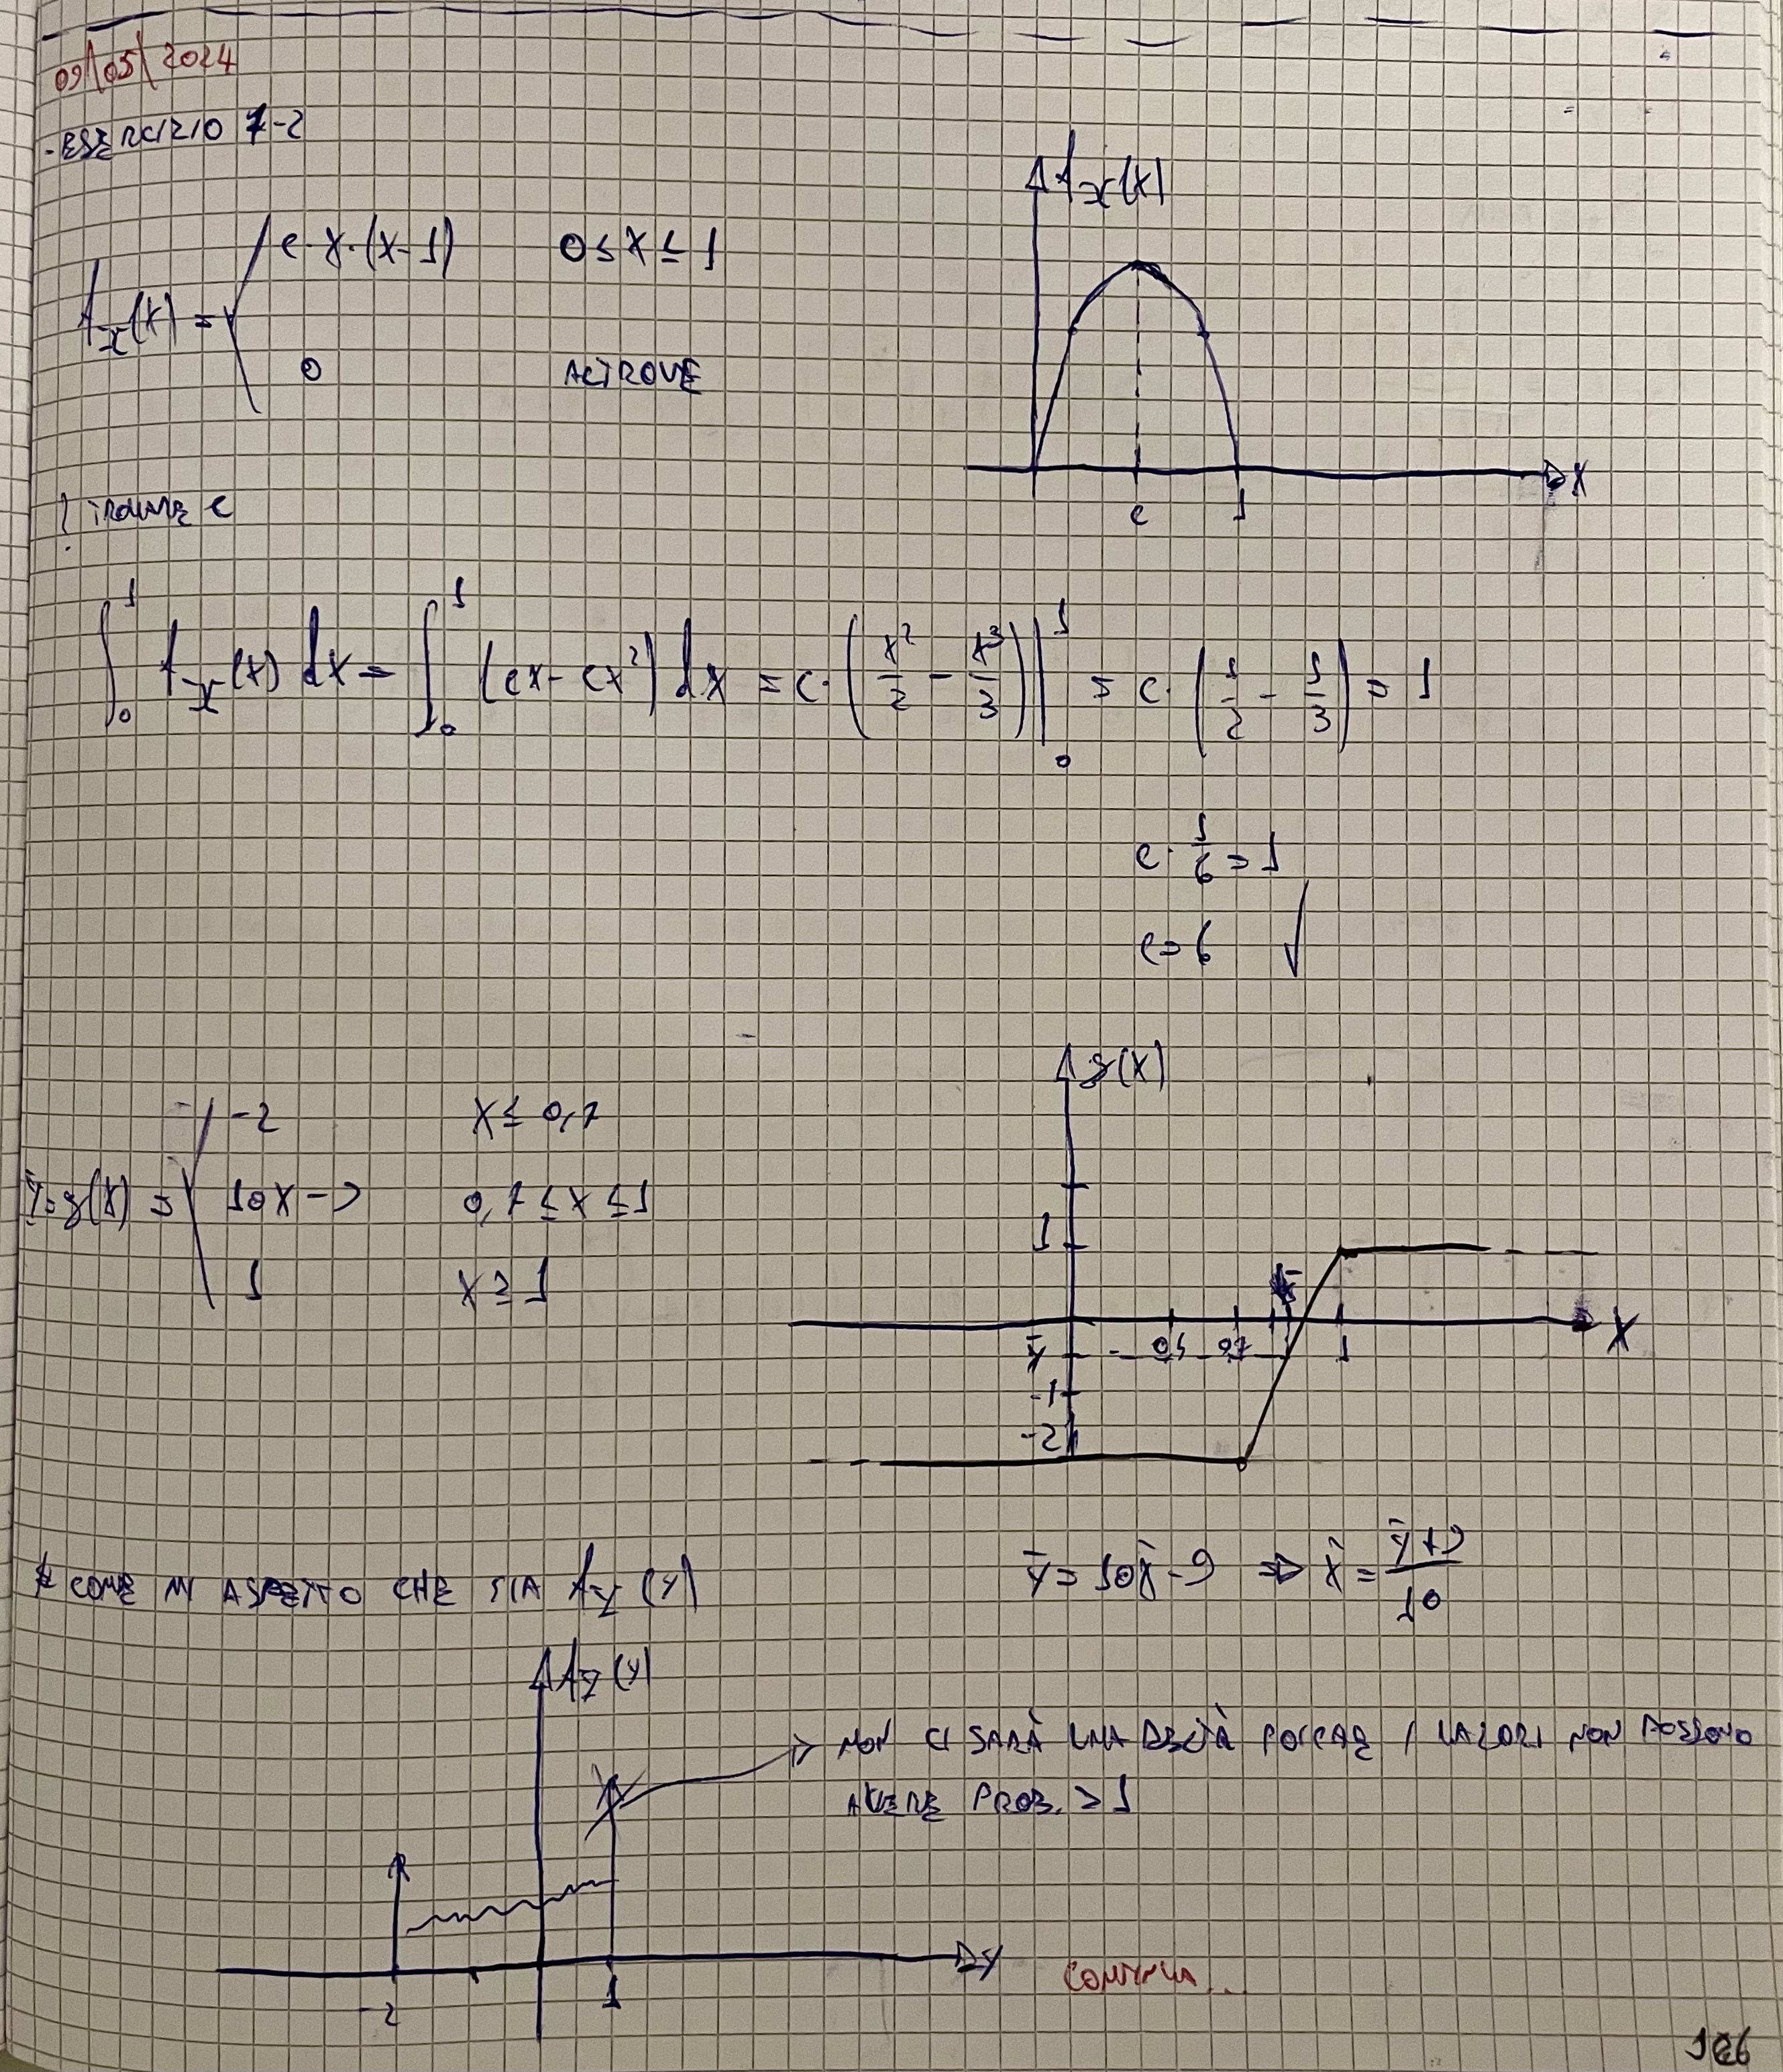 09/05/2024
- ESERCIZIO 7-2
f_X(x) = { c·x·(x-1) 0≤x≤1
0 ALTROVE
f_X(x)
x
c 1
? TROVARE c
∫₀¹ f_X(x) dx = ∫₀¹ (cx - cx²) dx = c·(x²/2 - x³/3)|₀¹ = c·(1/2 - 1/3) = 1
c·1/6 = 1
c=6 √
Y=g(X) = { -2 x≤0,7
10x-9 0,7≤x≤1
1 x≥1
g(x)
1
x
ȳ 0,5 0,7 1
-1
-2
ȳ = 10x̄-9 ⇒ x̄ = (ȳ+9)/10
COME MI ASPETTO CHE SIA f_Y(y)
f_Y(y)
→ NON CI SARÀ UNA DELTÀ POICHÈ I VALORI NON POSSONO
AVERE PROB. > 1
y
-2 1
CONTINUA...
186